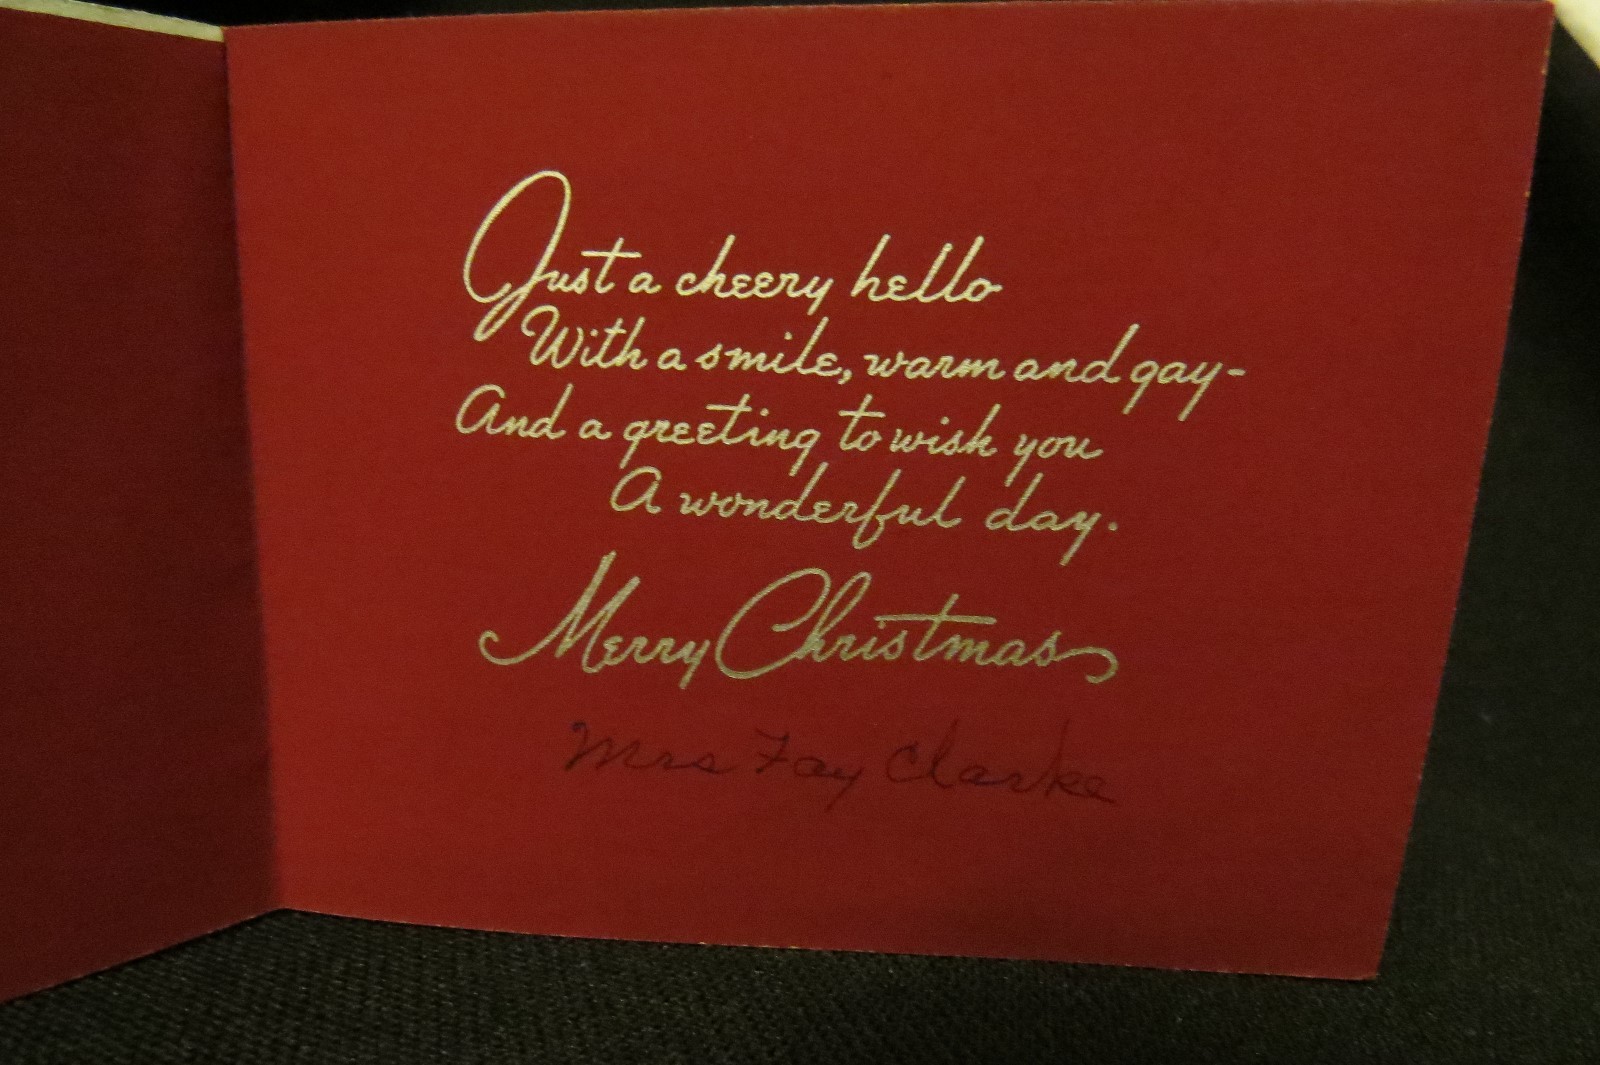 Just a cheery hello
With a smile, warm and gay-
And a greeting to wish you
A wonderful day.
Merry Christmas
Mrs Fay Clarke